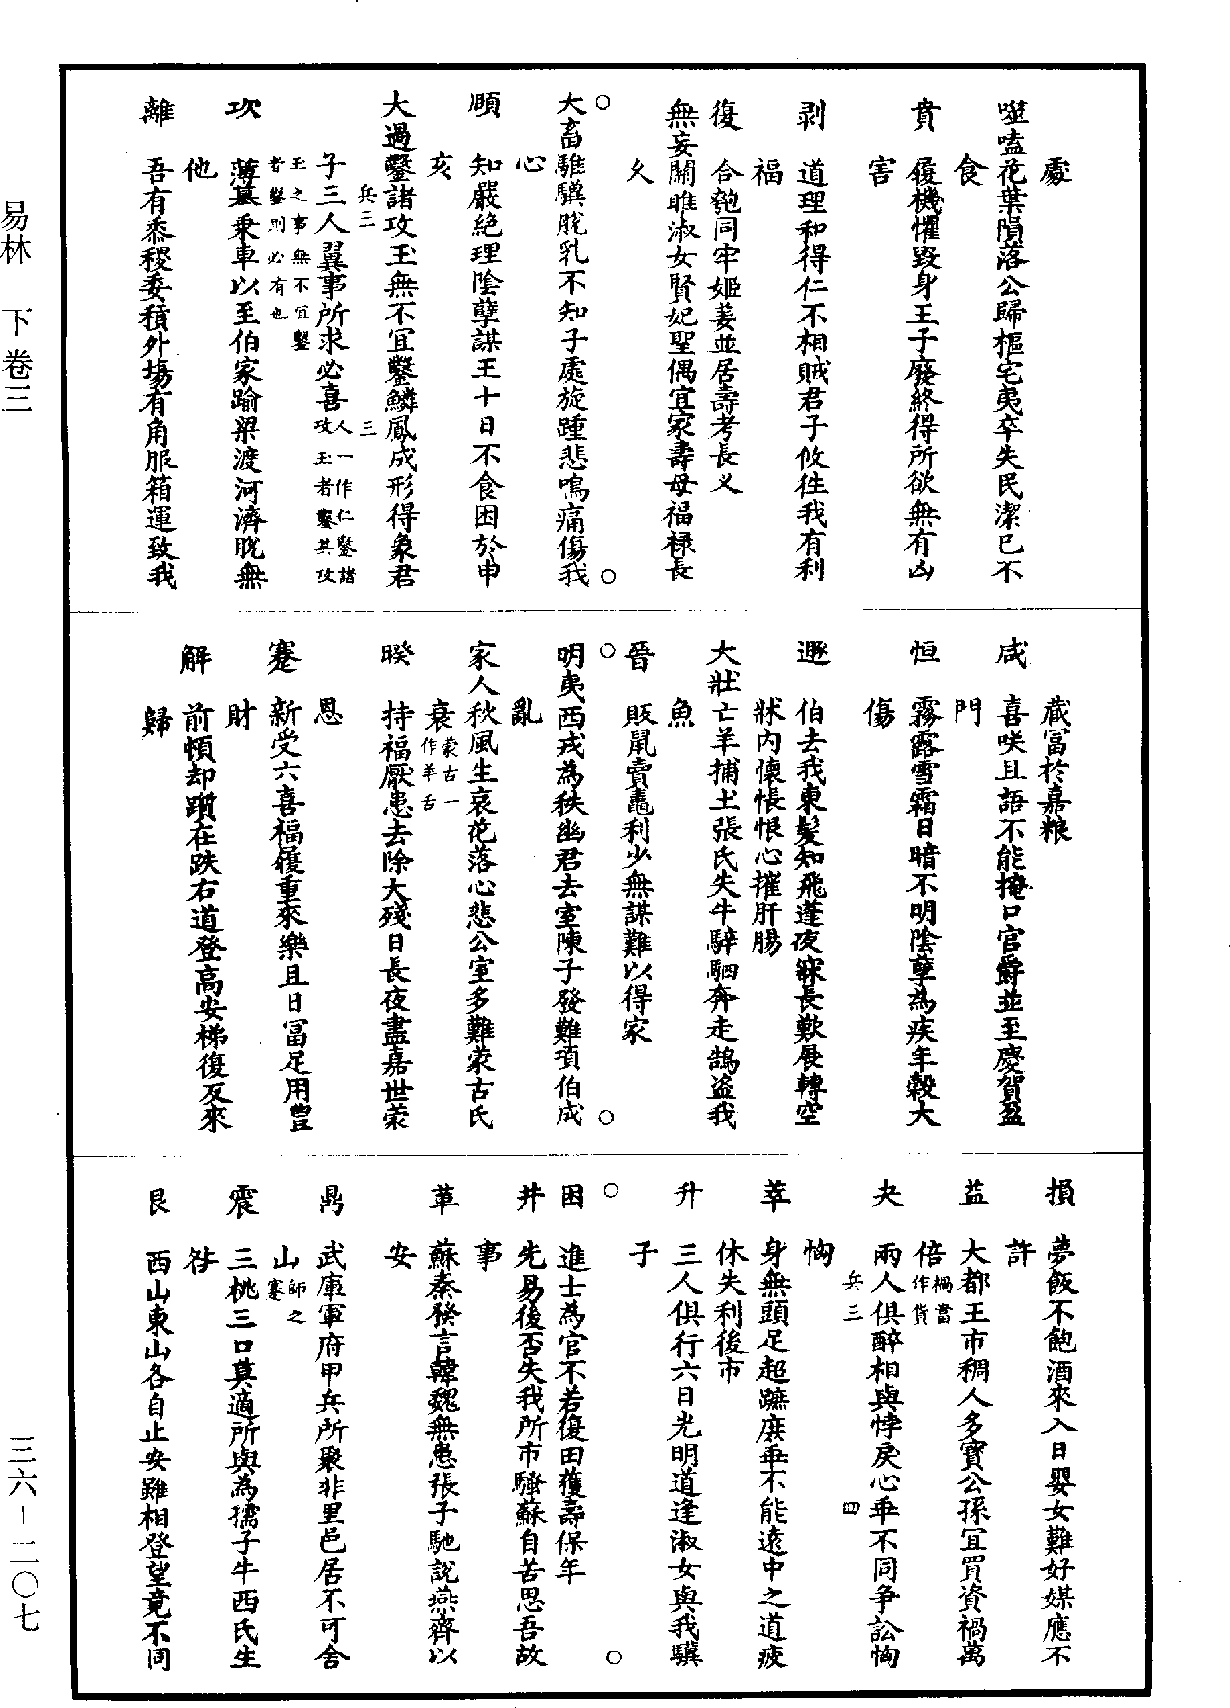 處
噬嗑花葉隕落公歸樞宅夷卒失民潔已不
食
賁　履機懼毀身王子廢終得所欲無有凶
害
剥　道理和得仁不相賊君子攸往我有利
福
復　合匏同牢姬姜並居壽考長乂
無妄關雎淑女賢妃聖偶宜家壽母福禄長
久
○　○
大畜騅驥脱乳不知子處旋踵悲鳴痛傷我
心
頤　知嚴絶理陰孽謀王十日不食困於申
亥
大過鑿諸攻玉無不宜鑿鱗鳳成形得象君
兵三　三
子三人翼事所求必喜人一作仁鑿諸攻玉者鑿其攻
玉之事無不宜鑿者鑿則必有也
坎　薄墓乘車以至伯家踰梁渡河濟脱無
他
離　吾有黍稷委積外場有角服箱運致我
藏富於嘉粮
咸　喜咲且語不能掩口官爵並至慶賀盈
門
恒　霧露雪霜日暗不明陰孽為疾年穀大
傷
遯　伯去我東髮知飛蓬夜寐長歎展轉空
牀内懷悵恨心摧肝腸
大壯亡羊捕土張氏失牛騂駟奔走鵠盜我
魚
晉　販鼠賣黽利少無謀難以得家
○　○
明夷西戎為秩幽君去室陳子發難項伯成
亂
家人秋風生哀花落心悲公室多難蒙古氏
衰蒙古一作羊舌
睽　持福厭患去除大殘日長夜盡嘉世蒙
恩
蹇　新受六喜福履重來樂且日富足用豊
財
解　前頓却躓在跌右道登高安梯復反來
歸
損　夢飯不飽酒來入日嬰女難好媒應不
許
益　大都王市稠人多寶公孫宜買資禍萬
倍禍當作貨
夬　兩人俱醉相與悖戾心乖不同争訟恟
兵三　四
恟
萃　身無頭足超蹠庪乖不能遠中之道疲
休失利後市
升　三人俱行六日光明道逢淑女與我驥
子
○　○
困　進士為官不若復田獲壽保年
井　先易後否失我所市騷蘇自苦思吾故
事
革　蘇秦發言韓魏無患張子馳說燕齊以
安
鼎　武庫軍府甲兵所聚非里邑居不可舍
山師之蹇
震　三桃三口莫適所與為孺子牛西氏生
咎
艮　西山東山各自止安雖相登望竟不同
易林　下卷三
三六－二〇七